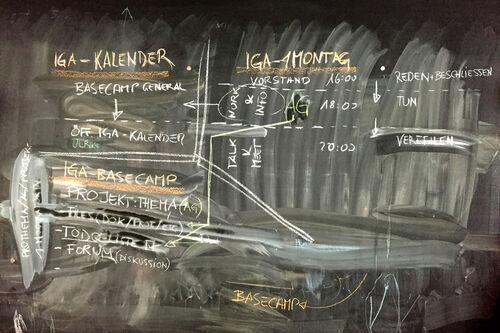 IGA-KALENDER
BASECAMP GENERAL
ÖFF. IGA-KALENDER
ULRIKE
IGA-BASECAMP
- PROJEKT:THEMA(AG)
- FORUM(DISKUSSION)
IGA-1MONTAG
VORSTAND 16:00
WORK & INFO
AG
18:00
TALK & MEET
20:00
REDEN+BESCHLIESSEN
TUN
BASECAMP